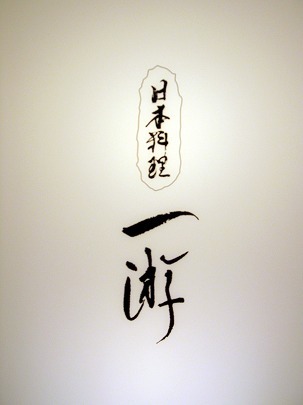 日本料理
一游